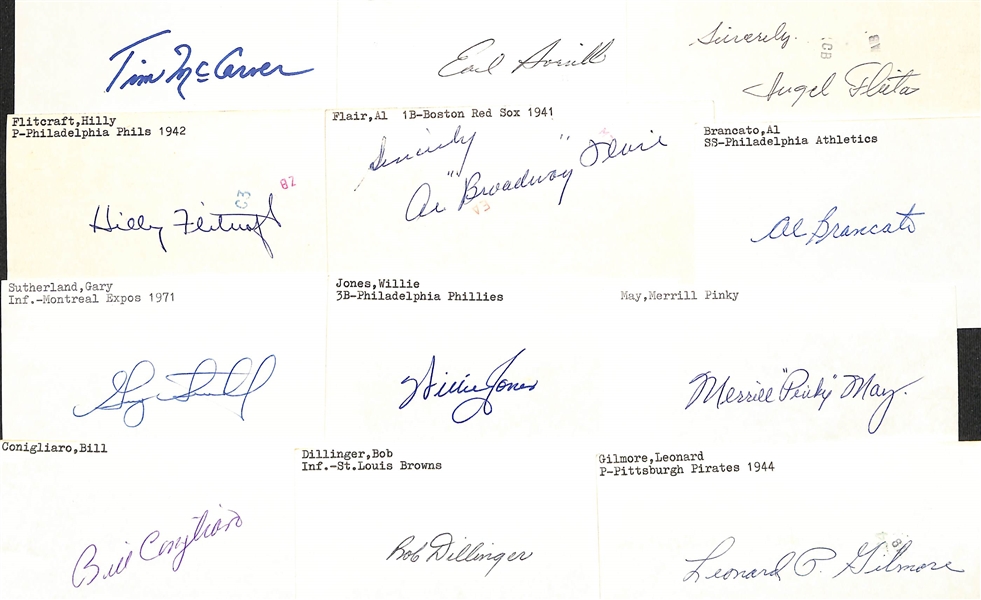 Tim McCarver
Earl Averill
Sincerely.
CB
Angel Fleitas
Flitcraft,Hilly
P-Philadelphia Phils 1942
C3
82
Hilly Flitcraft
Flair,Al 1B-Boston Red Sox 1941
Sincerely
Al "Broadway" Flair
Brancato,Al
SS-Philadelphia Athletics
Al Brancato
Sutherland,Gary
Inf.-Montreal Expos 1971
Gary Sutherland
Jones,Willie
3B-Philadelphia Phillies
Willie Jones
May,Merrill Pinky
Merrill "Pinky" May.
Conigliaro,Bill
Bill Conigliaro
Dillinger,Bob
Inf.-St.Louis Browns
Bob Dillinger
Gilmore,Leonard
P-Pittsburgh Pirates 1944
Leonard P. Gilmore